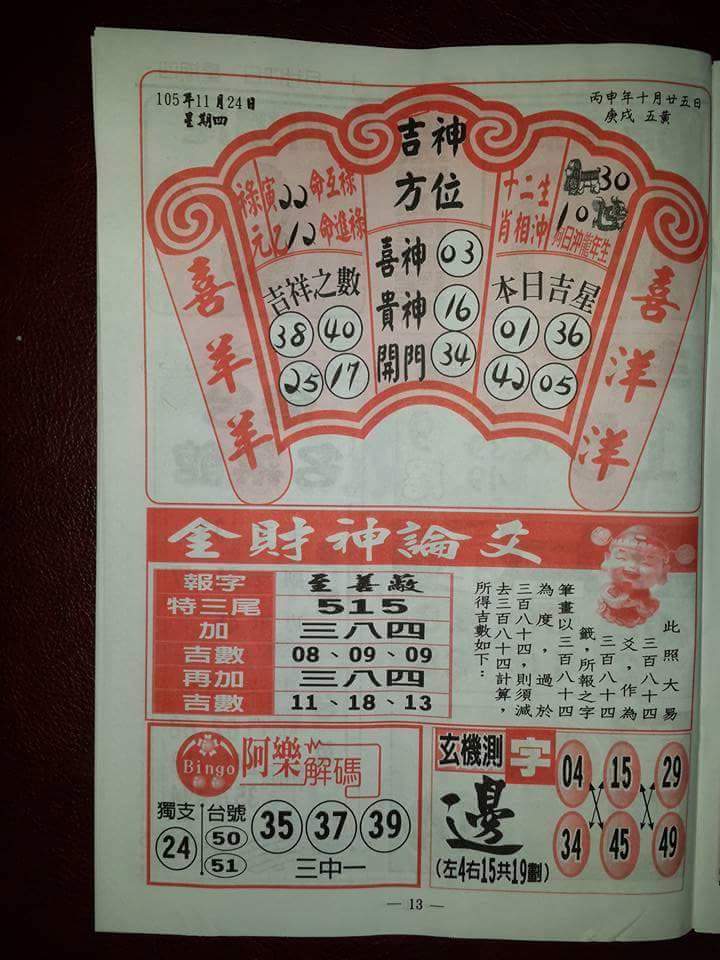 105年11月24日
星期四
丙申年十月廿五日
庚戌 五黃
吉神
方位
喜神 03
貴神 16
開門 34
祿寅22命互祿
元 12命進祿
吉祥之數
38 40
25 17
十二生
肖相沖
30
10
狗日沖龍年生
本日吉星
01 36
42 05
喜羊羊
喜洋洋
金財神論爻
報字 至善蔽
特三尾 515
加 三八四
吉數 08、09、09
再加 三八四
吉數 11、18、13
此照大易
三百八十四
爻,作為
三百八十四
籤,所報之字
筆畫以三百八十四
為度,過於
三百八十四,則須減
去三百八十四計算,
所得吉數如下:
Bingo 阿樂解碼
獨支 24
台號 50 51
35 37 39
三中一
玄機測字
邊
(左4右15共19劃)
04 15 29
34 45 49
— 13 —